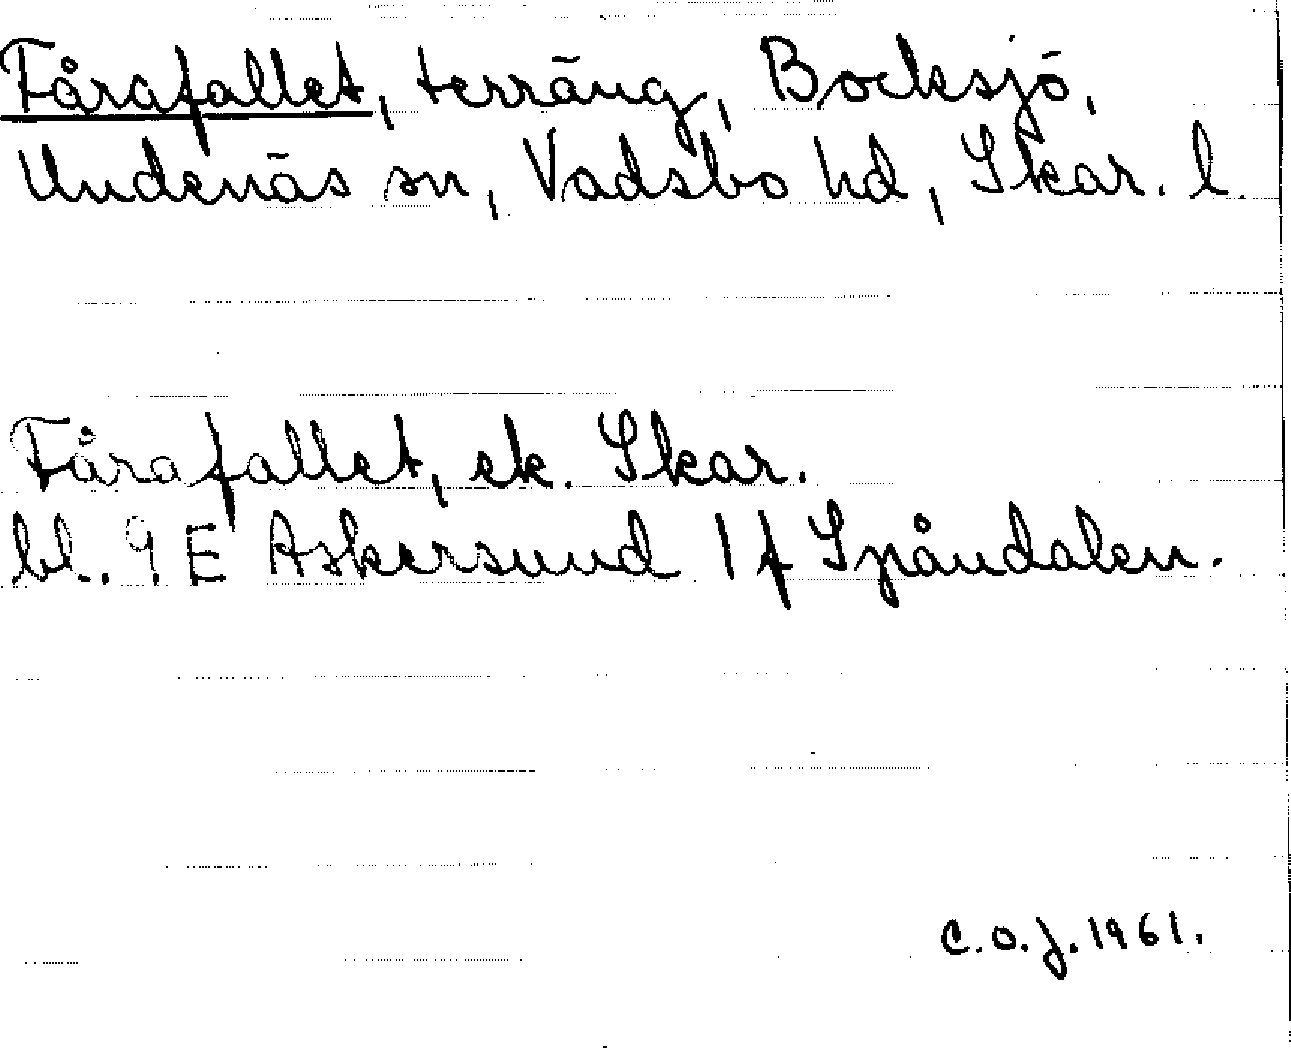 Fårafallet, terräng, Bocksjö,
Undenäs sn, Vadsbo hd, Skar. l.
Fårafallet, ek. Skar.
bl. 9 E Askersund 1 f Spåndalen.
C.O.J. 1961.